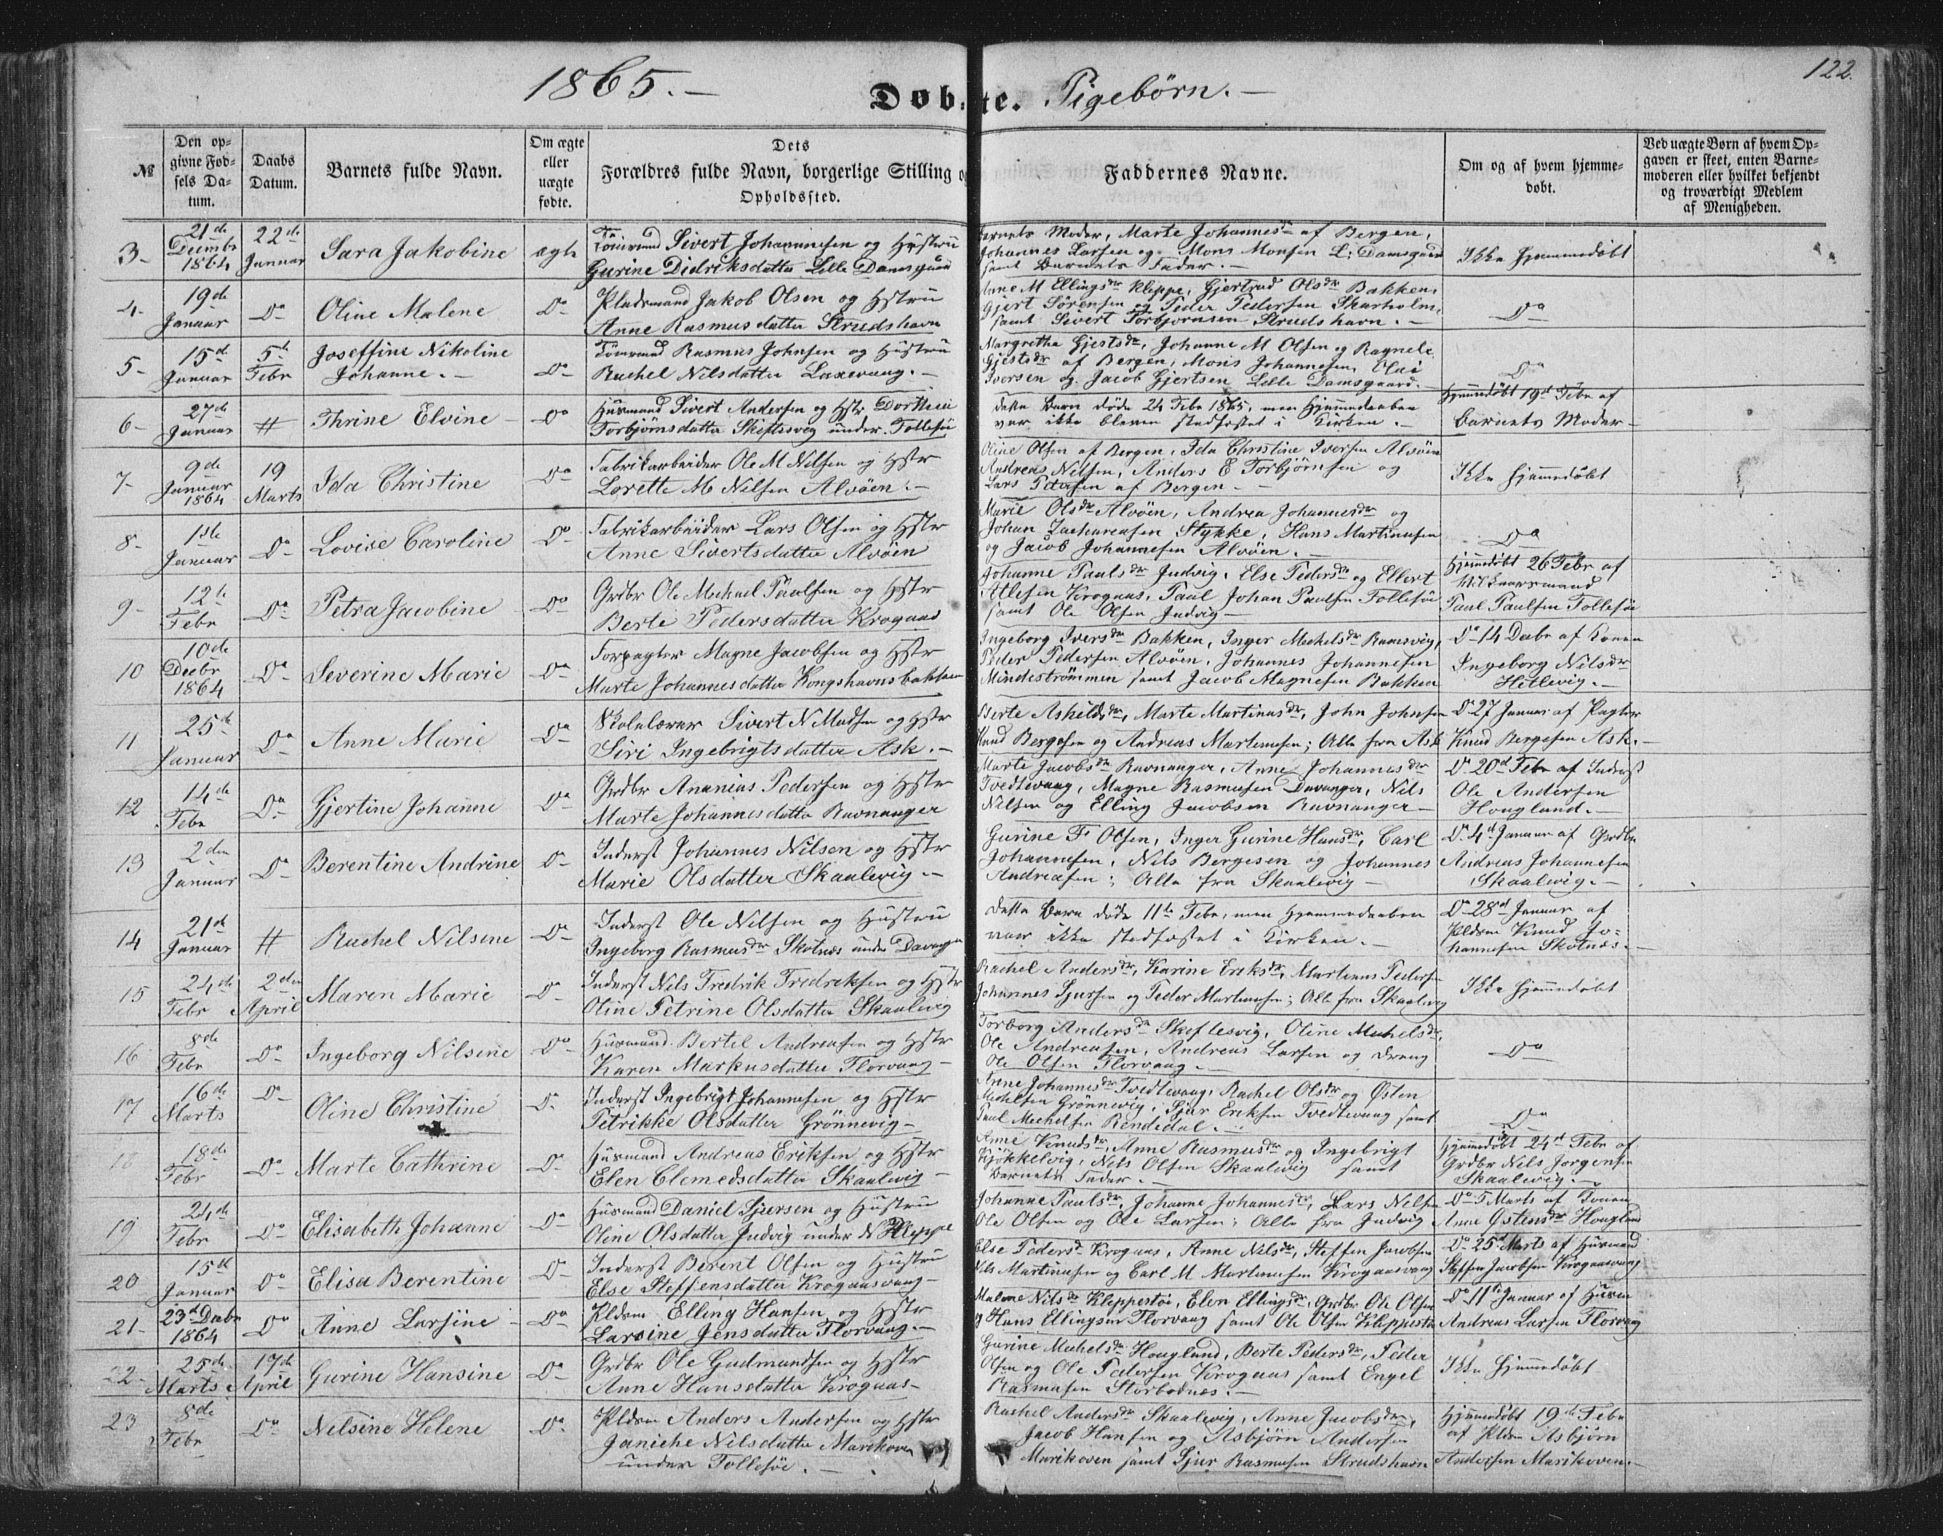 1865.- Døbte. Pigebørn.- 122.
№
Den opgivne Fødsels Datum.
Daabs Datum.
Barnets fulde Navn.
Om ægte eller uægte fødte.
Dets Forældres fulde Navn, borgerlige Stilling og Opholdssted.
Faddernes Navne.
Om og af hvem hjemmedøbt.
Ved uægte Børn af hvem Opgaven er skeet, enten Barnemoderen eller hvilket bekjendt og troværdigt Medlem af Menigheden.
3- 21de Decmbr 1864 22de Januar Sara Jakobine ægte
Sivert Johannesen og Hustru
Gurine Didriksdatter Lille Damsgaard
Barnets Moder, Marte Johannesdr af Bergen,
Johannes Larsen og Mons Monsen L: Damsgaard
samt Barnets Fader.-
Ikke hjemmedøbt
4- 19de Januar Do Oline Malene Do
Pladsmand Jakob Olsen og Hstru
Anne Rasmusdatter Strudshavn
Anne M Ellingsdr Kleppe, Gjertrud Olsdr Bakken,
Gjert Sørensen og Peder Pedersen Skarholm,
samt Sivert Torbjørnsen Strudshavn.-
Do
5- 15d Januar 5te Febr Joseffine Nikoline Johanne.- Do
Rasmus Johnsen og Hustru
Rachel Nilsdatter Laxevaag.-
Margretha Gjertsdr, Johanne M Olsen og Ragnele
Gjertsdr af Bergen, Mons Johannesen, Olai
Iversen og Jacob Gjertsen Lille Damsgaard.
Do
6- 27de Januar # Thrine Elvine Do
Huusmand Sivert Andersen og Hstr Dorthea
Torbjørnsdatter Skiftesvig under Follesøe
dette Barn døde 24 Febr 1865, men Hjemmedaaben
var ikke bleven stadfæstet i Kirken.-
Hjemmedøbt 19d Febr af
Barnets Moder-
7- 9de Januar 1864 19 Marts Ida Christine Do
Fabrikarbeider Ole M Nilsen og Hstr
Lorette M Nilsen Alvøen.-
Oline Olsen af Bergen, Ida Christine Iversen Alvøen
Andreas Nilsen, Anders E Torbjørnsen og
Lars Petersen af Bergen.-
Ikke hjemmedøbt
8- 1ste Januar Do Lovise Caroline Do
Fabrikarbeider Lars Olsen og Hstr
Anne Sivertsdatter Alvøen
Marie Olsdr Alvøen, Andrea Johannesdr og
Johan Zachariasen Stykke, Hans Martinusen
og Jacob Johannesen Alvøen.-
Do
9- 12te Febr Do Petra Jacobine Do
Grdbr Ole Michael Paulsen og Hstr
Berte Pedersdatter Krogaas
Johanne Paulsdr Judvig, Else Pedersdr og Ellert
Atlesen Krogaas, Paul Johan Paulsen Follesøe
samt Ole Olsen Judvig-
hjemmedøbt 26 Febr af
Vilkaarsmand
Paul Paulsen Follesøe
10 10de Decbr 1864 Do Severine Marie Do
Forpagter Magne Jacobsen og Hstr
Marte Johannesdatter Kongshavnsbakken
Ingeborg Iversdr Bakken, Inger Michelsdr Ramsvig,
Peder Pedersen Alvøen, Johannes Johannesen
Mindeströmmen samt Jacob Magnesen Bakken
Do 14 Decbr af Konen
Ingeborg Nilsdr
Hetlevig.-
11 25de Januar Do Anne Marie Do
Skolelærer Sivert N Madsen og Hstr
Siri Ingebrigtsdatter Ask.-
Berte Askildsdr, Marte Martinusdr, John Johnsen
Knud Bergesen og Andreas Martinusen; Alle fra Ask
Do 27 Januar af Pagter
Knud Bergesen Ask.-
12 14de Febr Do Gjertine Johanne Do
Grdbr Ananias Pedersen og Hstr
Marte Johannesdatter Ravnanger
Marte Jacobsdr Ravnanger, Anne Johannesdr
Tvedtevaag, Magne Rasmusen Davanger, Nils
Nilsen og Elling Jacobsen Ravnanger-
Do 20d Febr af Inderst
Ole Andersen
Hougland.-
13 2den Januar Do Berentine Andrine Do
Inderst Johannes Nilsen og Hstr
Marie Olsdatter Skaalevig.-
Gurine F Olsen, Inger Gurine Hansdr, Carl
Johannesen, Nils Bergesen og Johannes
Andreasen; Alle fra Skaalevig-
Do 4d Januar af Grdbr
Andreas Johannesen
Skaalevig.-
14 21de Januar # Rachel Nilsine Do
Inderst Ole Nilsen og Hustru
Ingeborg Rasmusdr Skotnæs under Davanger
dette Barn døde 11te Febr, men hjemmedaaben
var ikke stadfæstet i Kirken.-
Do 28d Januar af
Pldsm Knud Johannesen Skotnæs.-
15 24de Febr 2den April Maren Marie Do
Inderst Nils Fredrik Fredriksen og Hstr
Oline Petrine Olsdatter Skaalevig
Rachel Andersdr, Karine Eriksdr, Martinus Pedersen
Johannes Sjursen og Peder Martinusen; Alle fra Skaalevig
Ikke hjemmedøbt
16 8de Febr Do Ingeborg Nilsine Do
Huusmand Bertel Andreasen og Hstr
Karen Markusdatter Florvaag-
Torborg Andersdr Skiftesvig, Oline Michelsdr,
Ole Andreasen, Andreas Larsen og Dreng
Ole Olsen Florvaag.-
Do
17 16de Marts Do Oline Christine D.
Inderst Ingebrigt Johannesen og Hstr
Petrikke Olsdatter Grønnevig-
Anne Johannesdr Tvedtevaag, Rachel Olsdr og Østen
Michelsen Grønnevig, Sjur Eriksen Tvedtevaag samt
Paul Michelsen Rendedal.-
Do
18 18de Febr Do Marte Cathrine Do
Huusmand Andreas Eriksen og Hstr
Elen Clemedsdatter Skaalevig-
Anne Knudsdr, Anne Rasmusdr og Ingebrigt
Kjøkkelvig, Nils Olsen Skaalevig samt
Barnets Fader.-
Hjemmedøbt 24d Febr af
Grdbr Nils Jørgensen
Skaalevig.-
19 24de Febr Do Elisabeth Johanne Do
Huusmand Daniel Sjursen og Hustru
Oline Olsdatter Judvig under N Kleppe
Johanne Paulsdr, Johanne Johannesdr, Lars Nilsen
Ole Olsen og Ole Larsen; Alle fra Judvig
Do 5 Marts af Konen
Anne Østensdr Hougland
20 15de Januar Do Elisa Berentine Do
Inderst Berent Olsen og Hustru
Else Steffensdatter Krogaasvaag-
Else Pedersdr Krogaas, Anne Nilsdr, Steffen Jacobsen
Nils Martinusen og Carl M Martinusen Krogaasvaag
Do 25d Marts af Huusmand
Steffen Jacobsen Krogaasvaag
21- 23d Decbr 1864 Do Anne Larsine Do
Pldsm Elling Hansen og Hstr
Larsine Jensdatter Florvaag.-
Malene Nilsdr Kleppestøe, Elen Ellingsdr, Grdbr Ole Olsen
og Hans Ellingsen Florvaag samt Ole Olsen Kleppestøe
Do 11te Januar af Huusm
Andreas Larsen Florvaag
22- 25de Marts 17de April Gurine Hansine Do
Grdbr Ole Gudmundsen og Hstr
Anne Hansdatter Krogaas-
Gurine Michelsdr Hougland, Berte Pedersdr, Peder
Olsen og Ole Pedersen Krogaas samt Engel
Rasmusen Storbodnæs.-
Ikke hjemmedøbt
23 8de Febr Do Nilsine Helene Do
Pldsm Anders Andersen og Hstr
Janiche Nilsdatter Marikoven
under Follesøe.-
Rachel Andersdr Skaalevig, Anne Jacobsdr,
Jacob Hansen og Asbjørn Andersen
Marikoven samt Sjur Rasmusen Strudshavn
Hjemmedøbt 19d Febr
af Pldsm Asbjørn
Andersen Marikoven.-